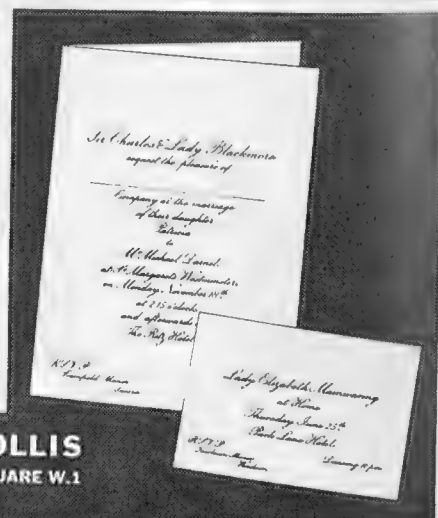 Sir Charles & Lady Blackmora
request the pleasure of
Company at the marriage
of their daughter
Patricia
to
Mr Michael Darnel
at St Margarets Westminster
on Monday, November 18th
at 2.15 o'clock
and afterwards
The Ritz Hotel
R.S.V.P.
Lady Elizabeth Mainwaring
at Home
Thursday June 25th
Park Lane Hotel
R.S.V.P.
Dancing 10 p.m.
OLLIS
UARE W.1